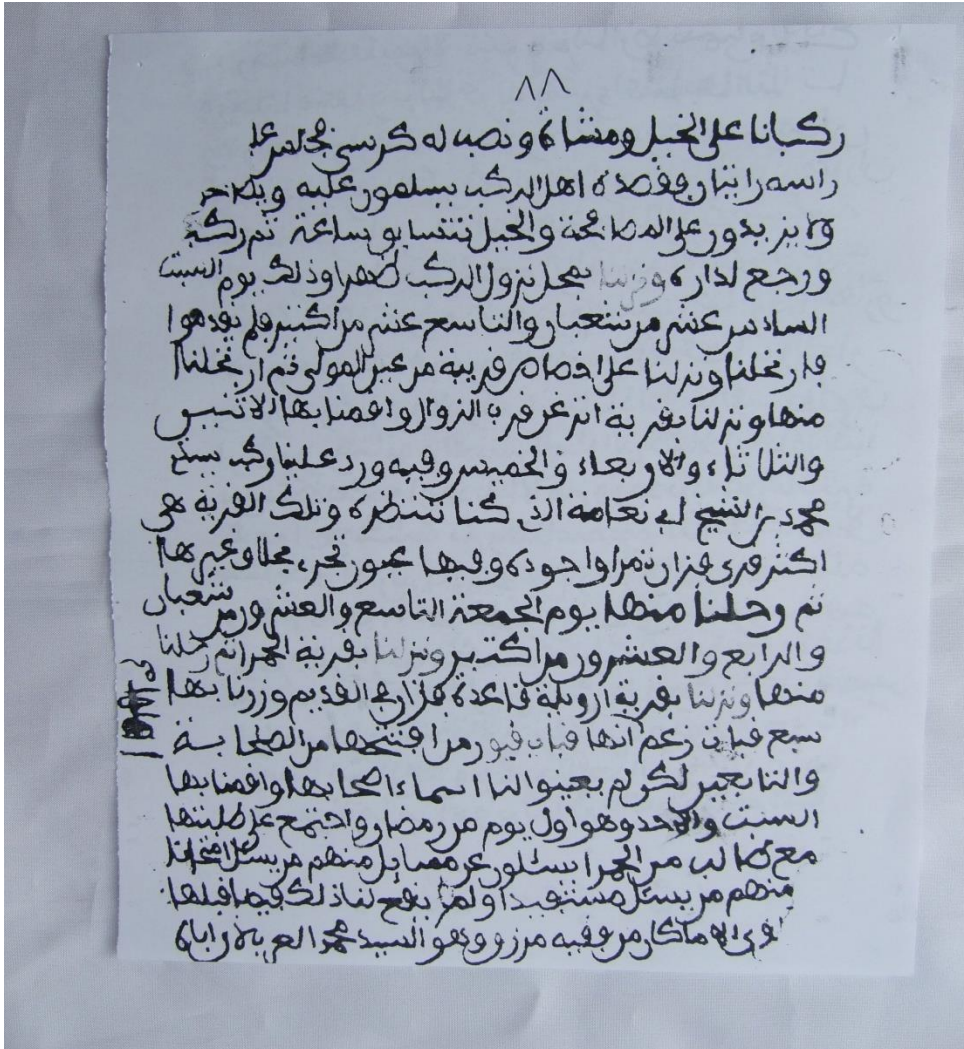 ٨٨
ركبانا على الخيل ومشاة ونصب له كرسي فجلس على
راسه رايتان فقصده اهل الركب يسلمون عليه ويصا
ولا يزيدون على المصافحة والخيل تتسابق ساعة ثم ركب
ورجع لداره ونزلنا بمحل نزول الركب ظهرا وذلك يوم السبت
السادس عشر من شعبان والتاسع عشر من اكتبر فلم
فارتحلنا ونزلنا على قريبة من عين المولى ثم ارتحلنا
منها ونزلنا بقرية قرب الزوال واقمنا بها الاثنين
والثلاثاء والاربعاء والخميس وفيه ورد علينا ركب
محمد بن الشيخ ابي نعامة الذي كنا ننتظره وتلك القرية هي
اكثر قرى فزان تمرا واجوده وفيها عيون تجري بخلاف غيرها
ثم رحلنا منها يوم الجمعة التاسع والعشرون من شعبان
والرابع والعشرون من اكتبر ونزلنا بقرية الحمرا ثم رحلنا
منها ونزلنا بقرية ازويلة قاعدة فزان في القديم وزرنا بها
سبع قباب زعم انها قباب قبور من افتتحها من الصحابة
والتابعين لكن لم يعينوا لنا اسماء اصحابها واقمنا بها
السبت والاحد وهو اول يوم من رمضان واجتمع علي طلبتها
مع طالب من الحمرا يسئلون عن مسايل منهم من يسئل امتحانا
منهم من يسئل مستفيدا ولم يقع لنا ذلك فيما قبلها
الا ما كان من فقيه مرزوق وهو السيد محمد العربي